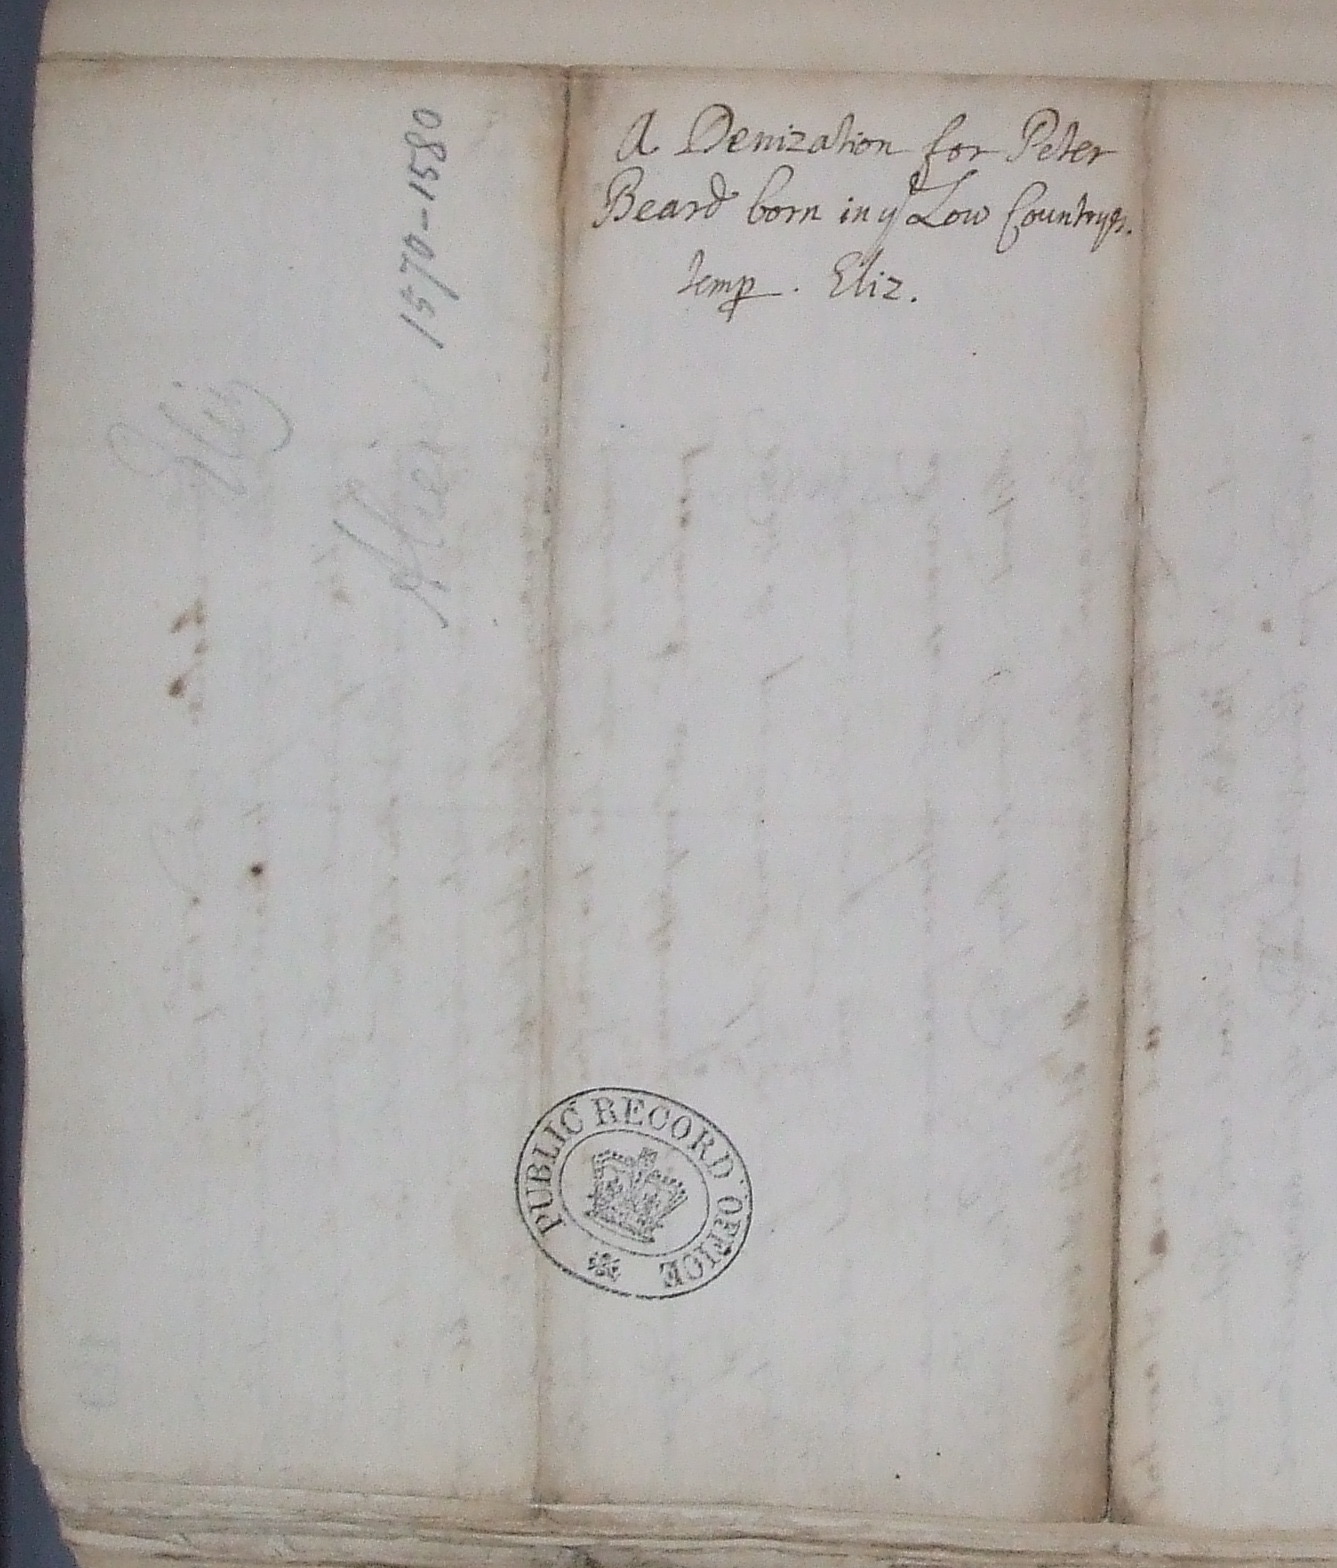 A Denization for Peter
Beard born in yͤ Low Countrys.
temp. Eliz.
1570-1580
Eliz
PUBLIC RECORD OFFICE